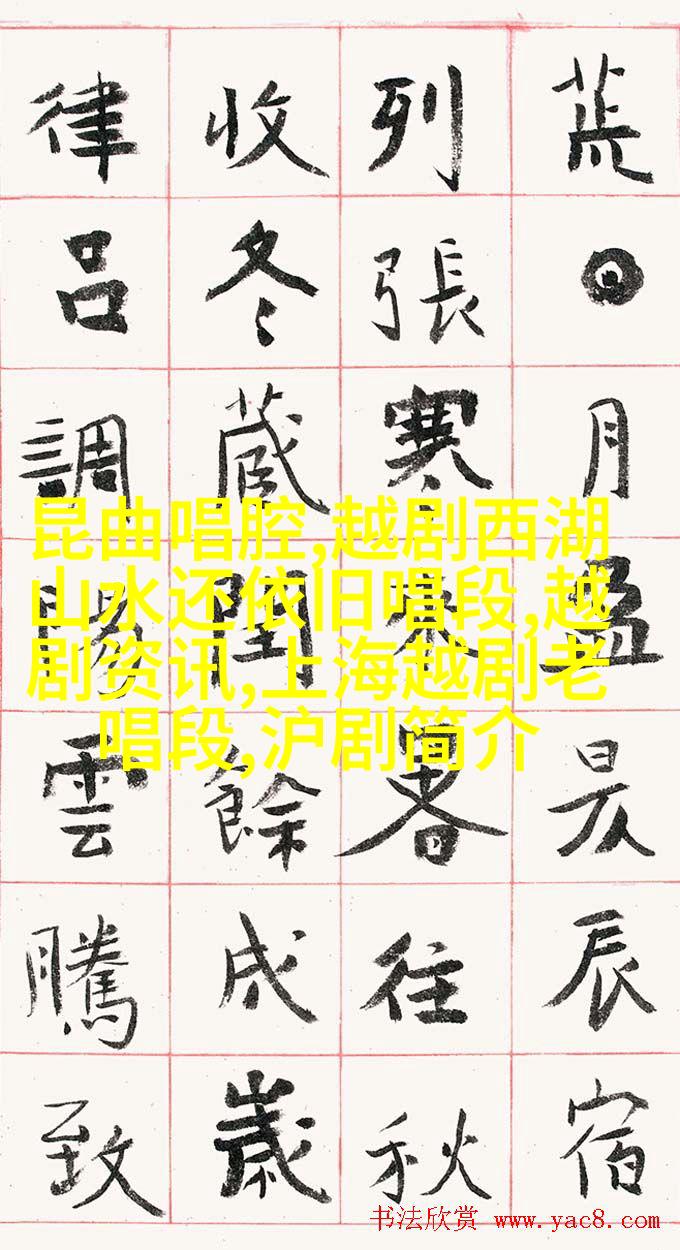 荒月盈昃辰宿
列張寒來暑往秋
收冬藏閏餘成歲
律呂調陽雲騰致
昆曲唱腔,越剧西湖
山水还依旧唱段,越
剧资讯,上海越剧老
唱段,沪剧简介
书法欣赏 www.yac8.com